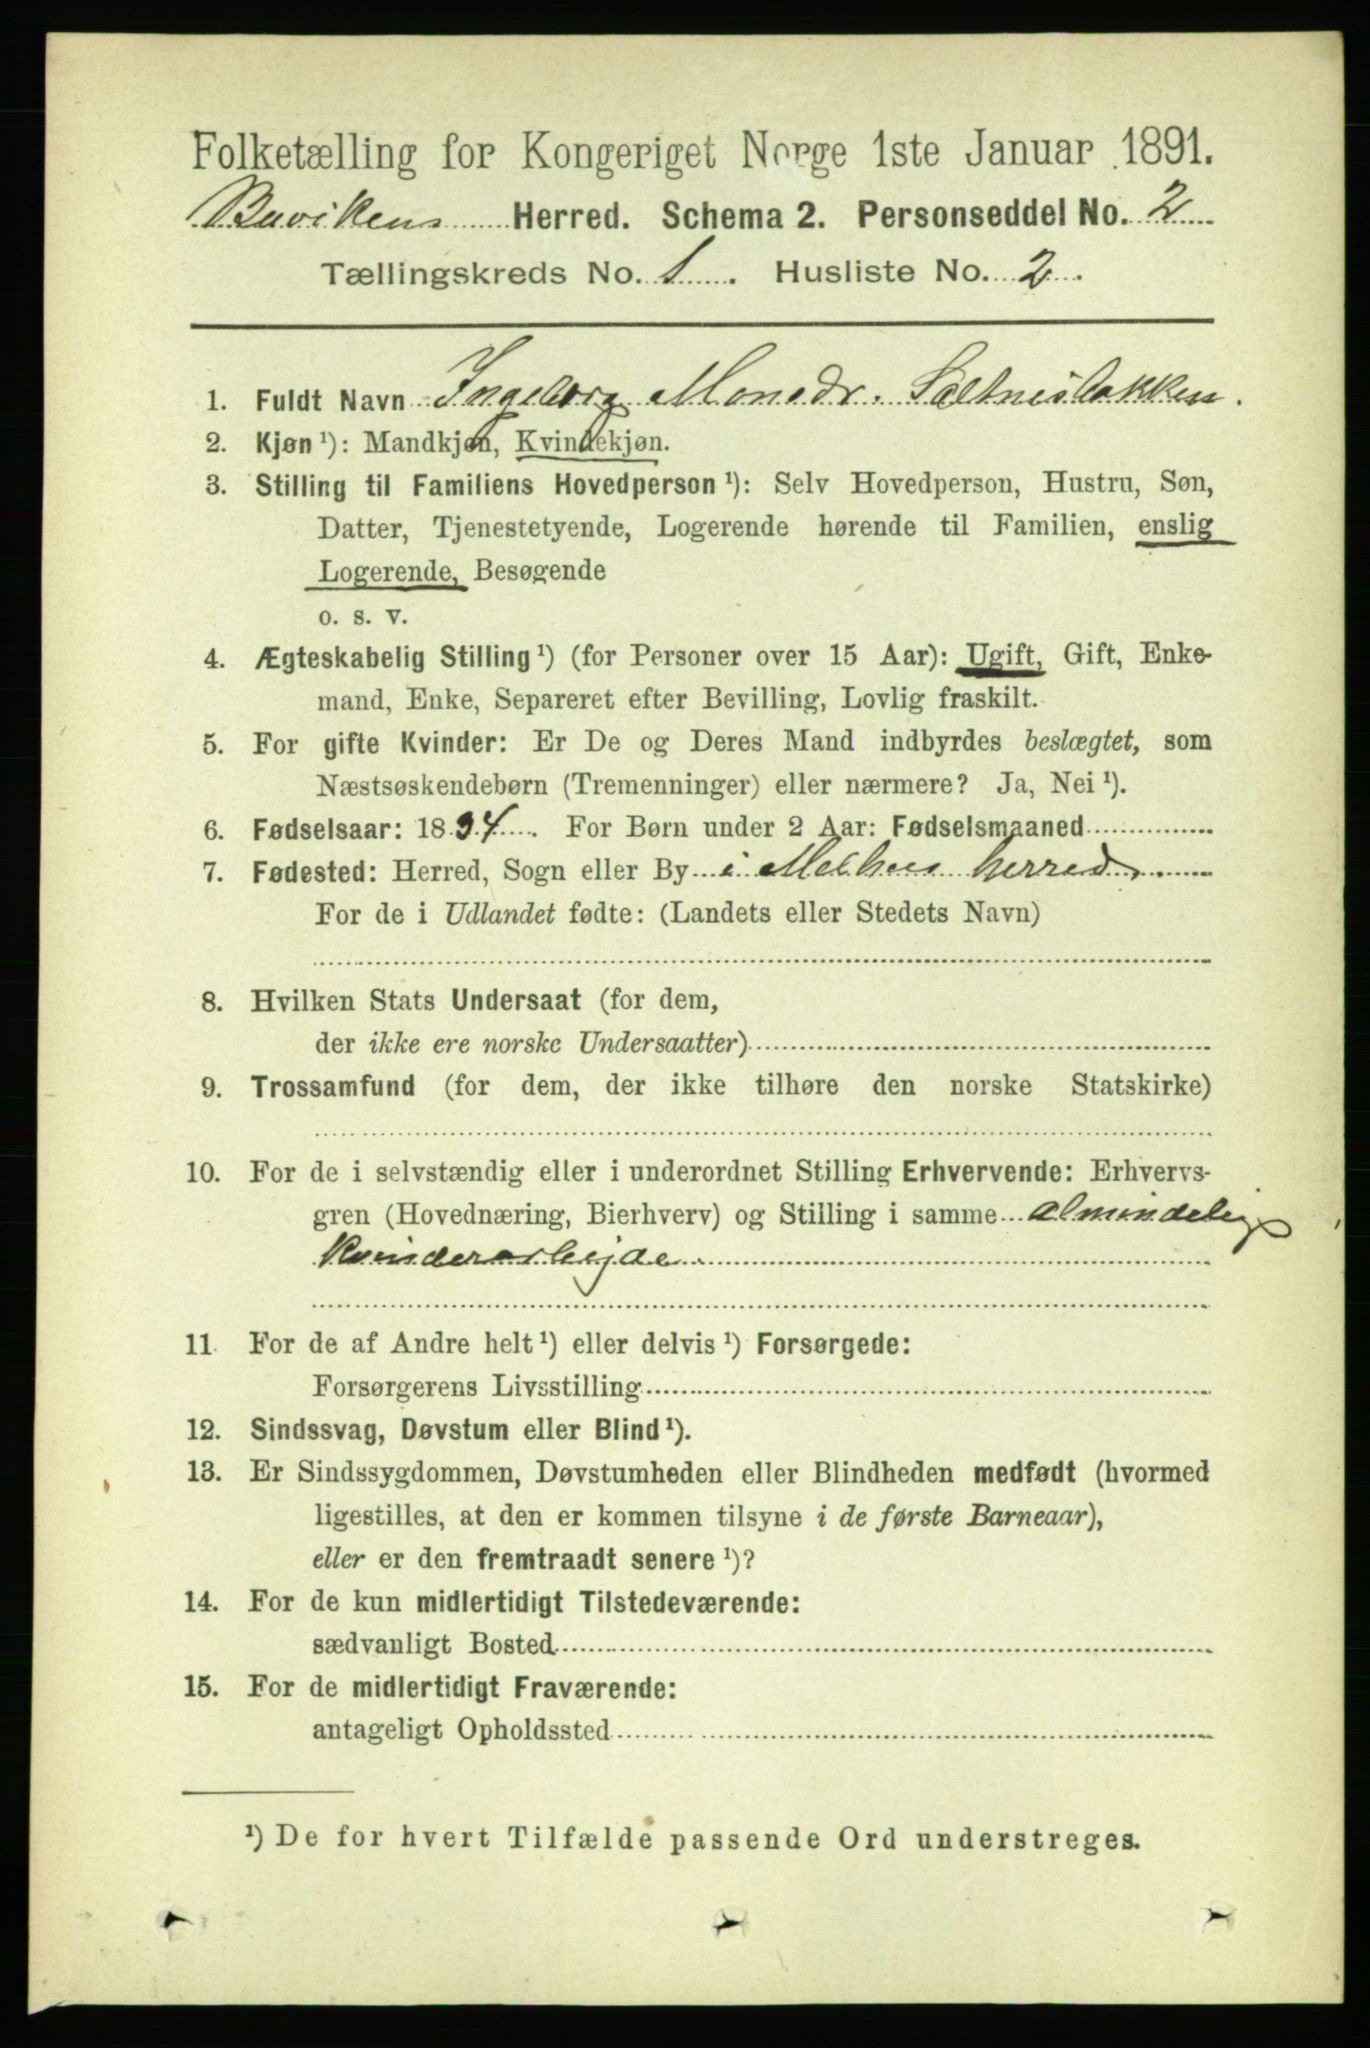 Folketælling for Kongeriget Norge 1ste Januar 1891.
Buvikens Herred. Schema 2. Personseddel No. 2
Tællingskreds No. 1. Husliste No. 2.
1. Fuldt Navn Ingeborg Monsdr. Saltnisbakken.
2. Kjøn ¹): Mandkjøn, Kvindekjøn.
3. Stilling til Familiens Hovedperson ¹): Selv Hovedperson, Hustru, Søn,
Datter, Tjenestetyende, Logerende hørende til Familien, enslig
Logerende, Besøgende
o. s. v.
4. Ægteskabelig Stilling ¹) (for Personer over 15 Aar): Ugift, Gift, Enke-
mand, Enke, Separeret efter Bevilling, Lovlig fraskilt.
5. For gifte Kvinder: Er De og Deres Mand indbyrdes beslægtet, som
Næstsøskendebørn (Tremenninger) eller nærmere? Ja, Nei ¹).
6. Fødselsaar: 1834. For Børn under 2 Aar: Fødselsmaaned
7. Fødested: Herred, Sogn eller By i Melhus herred.
For de i Udlandet fødte: (Landets eller Stedets Navn)
8. Hvilken Stats Undersaat (for dem,
der ikke ere norske Undersaatter)
9. Trossamfund (for dem, der ikke tilhøre den norske Statskirke)
10. For de i selvstændig eller i underordnet Stilling Erhvervende: Erhvervs-
gren (Hovednæring, Bierhverv) og Stilling i samme almindelig
kvinderarbejde.
11. For de af Andre helt ¹) eller delvis ¹) Forsørgede:
Forsørgerens Livsstilling
12. Sindssvag, Døvstum eller Blind ¹).
13. Er Sindssygdommen, Døvstumheden eller Blindheden medfødt (hvormed
ligestilles, at den er kommen tilsyne i de første Barneaar),
eller er den fremtraadt senere ¹)?
14. For de kun midlertidigt Tilstedeværende:
sædvanligt Bosted
15. For de midlertidigt Fraværende:
antageligt Opholdssted
¹) De for hvert Tilfælde passende Ord understreges.